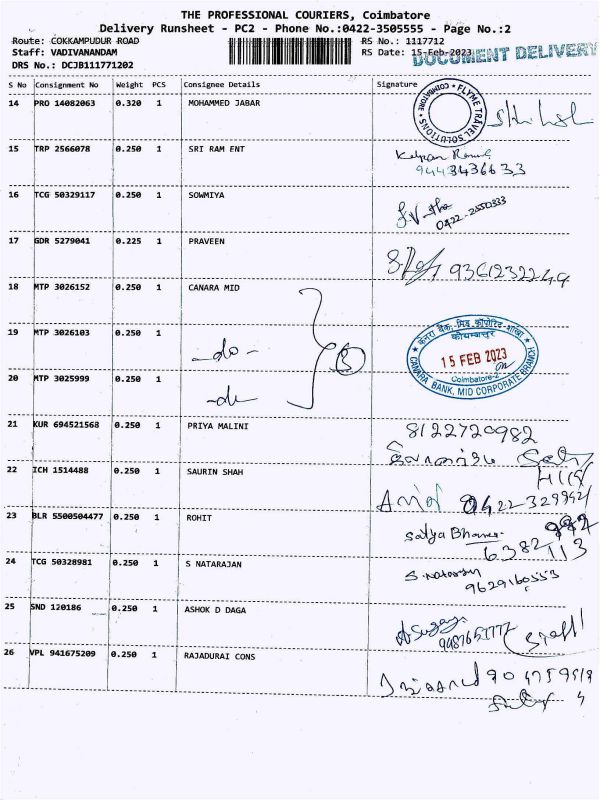 THE PROFESSIONAL COURIERS, Coimbatore
Delivery Runsheet - PC2 - Phone No.:0422-3505555 - Page No.:2
Route: COKKAMPUDUR ROAD RS No.: 1117712
Staff: VADIVANANDAM RS Date: 15-Feb-2023 DOCUMENT DELIVERY
DRS No.: DCJB111771202
S No Consignment No Weight PCS Consignee Details Signature
14 PRO 14082063 0.320 1 MOHAMMED JABAR
FLYME TRAVEL SOLUTIONS * COIMBATORE *
15 TRP 2566078 0.250 1 SRI RAM ENT
9443436633
16 TCG 50329117 0.250 1 SOWMIYA
0422-2550333
17 GDR 5279041 0.225 1 PRAVEEN
9361232249
18 MTP 3026152 0.250 1 CANARA MID
19 MTP 3026103 0.250 1 -do- 3
केनरा बैंक, मिड कॉर्पोरेट शाखा
कोयम्बत्तूर
15 FEB 2023
Coimbatore-2
CANARA BANK, MID CORPORATE BRANCH
20 MTP 3025999 0.250 1 -do-
21 KUR 694521568 0.250 1 PRIYA MALINI 8122720982
22 ICH 1514488 0.250 1 SAURIN SHAH
23 BLR 5500504477 0.250 1 ROHIT
Satya Bhama
24 TCG 50328981 0.250 1 S NATARAJAN
S. Natarajan
9629160553
25 SND 120186 0.250 1 ASHOK D DAGA
26 VPL 941675209 0.250 1 RAJADURAI CONS